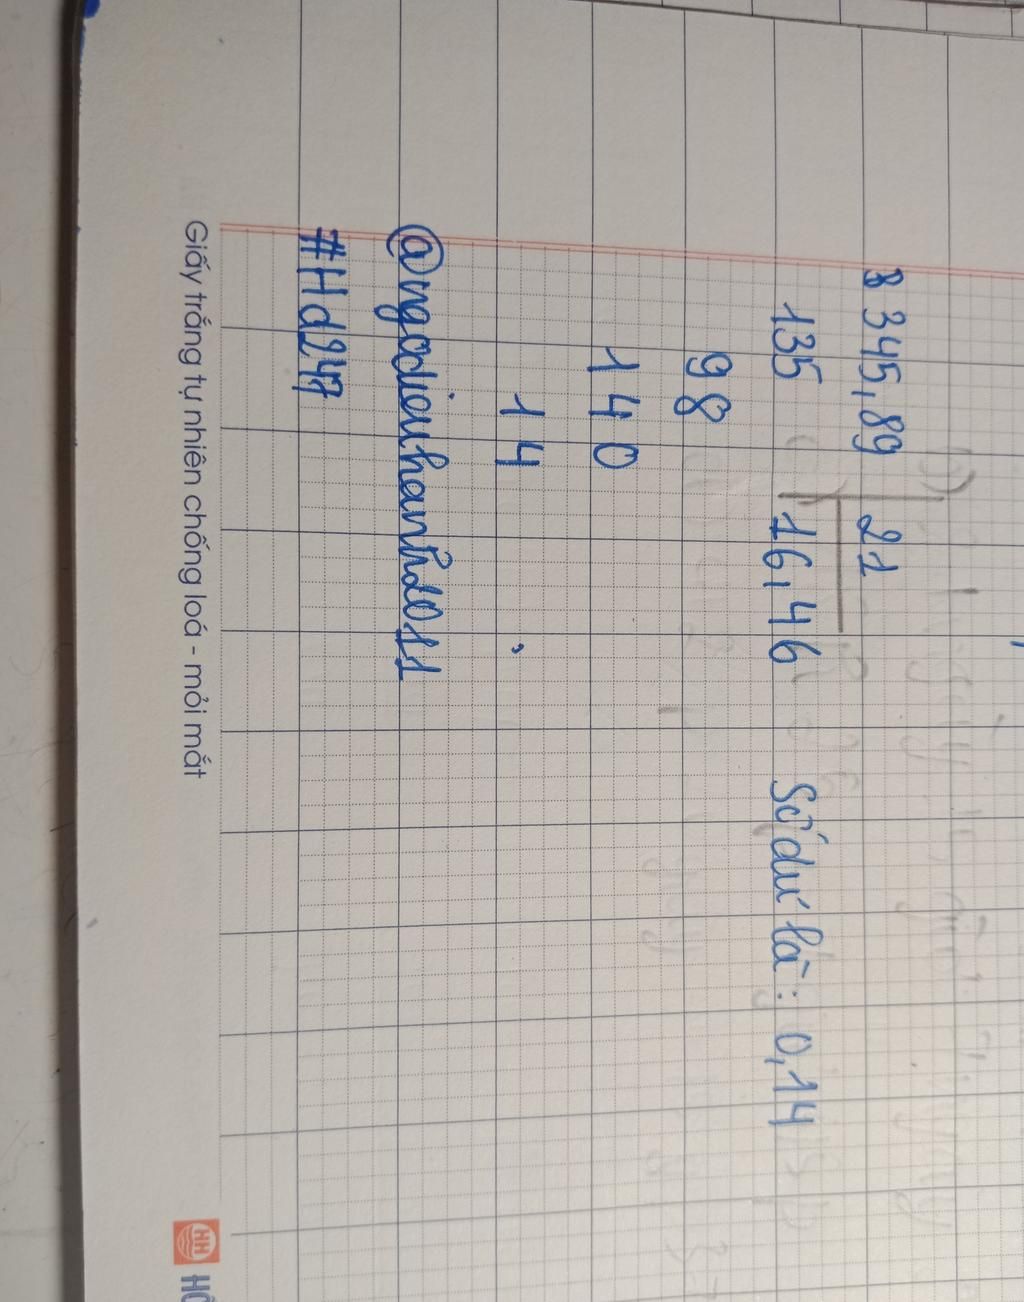 345,89 21
135 16,46 Số dư là: 0,14
98
140
14
@ngodieuhanh2011
#Hd247
Giấy trắng tự nhiên chống loá - mỏi mắt
HH HỒ